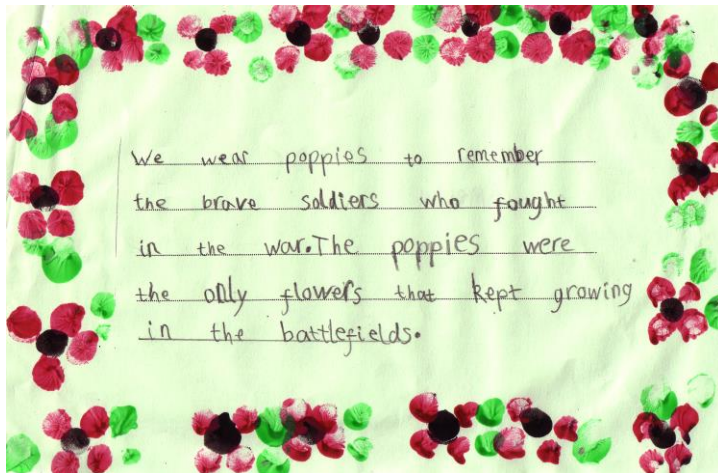 We wear poppies to remember
the brave soldiers who fought
in the war.The poppies were
the only flowers that kept growing
in the battlefields.